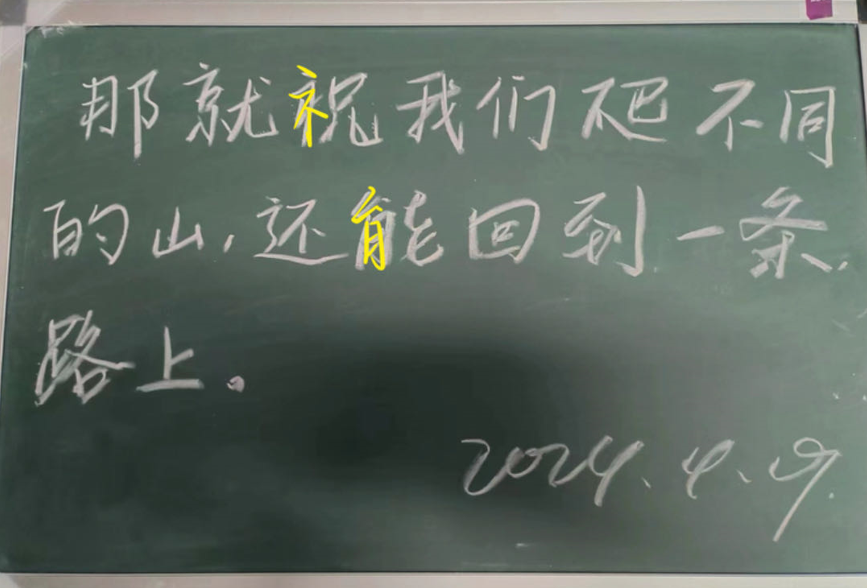 那就祝我们爬不同
的山,还能回到一条
路上。
2024.4.9.